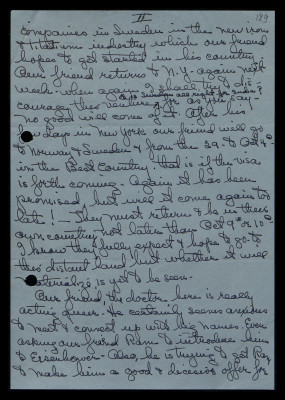 II
129
companies in Sweden in the new iron
& titanium industry which our friend
hopes to get started in his country.
Our friend returns to N.Y. again next
week - when again I shall try to dis-
courage this venture for as you say -
no good will come of it. After his
few days in New York our friend will go
to Norway & Sweden & from the 29. to Oct 4th
in the Best Country. that is if the visa
is forth coming - Again it has been
promised, but will it come again too
late! - They must return & be in their
own country not later than Oct 9th or 10th
I know they fully expect & hope to go to
this distant land but whether it will
materialize is yet to be seen.
Our friend the doctor here is really
acting queer. He certainly seems anxious
to meet & connect up with big names. Even
asking our friend Ram to introduce him
to Eisenhower - Also, he is trying to get Ray
to make him a good & decisive offer for